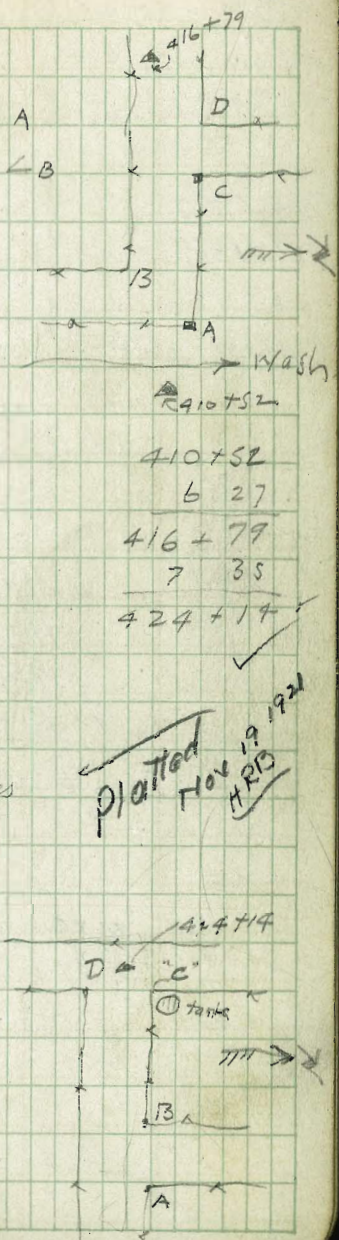 416+79
A
D
B
C
B
A
Wash
410+52
410+52
6 27
416+79
7 35
424+14
Platted
Nov 19 1921
HRB
s
424+14
D "C"
tank
B
A